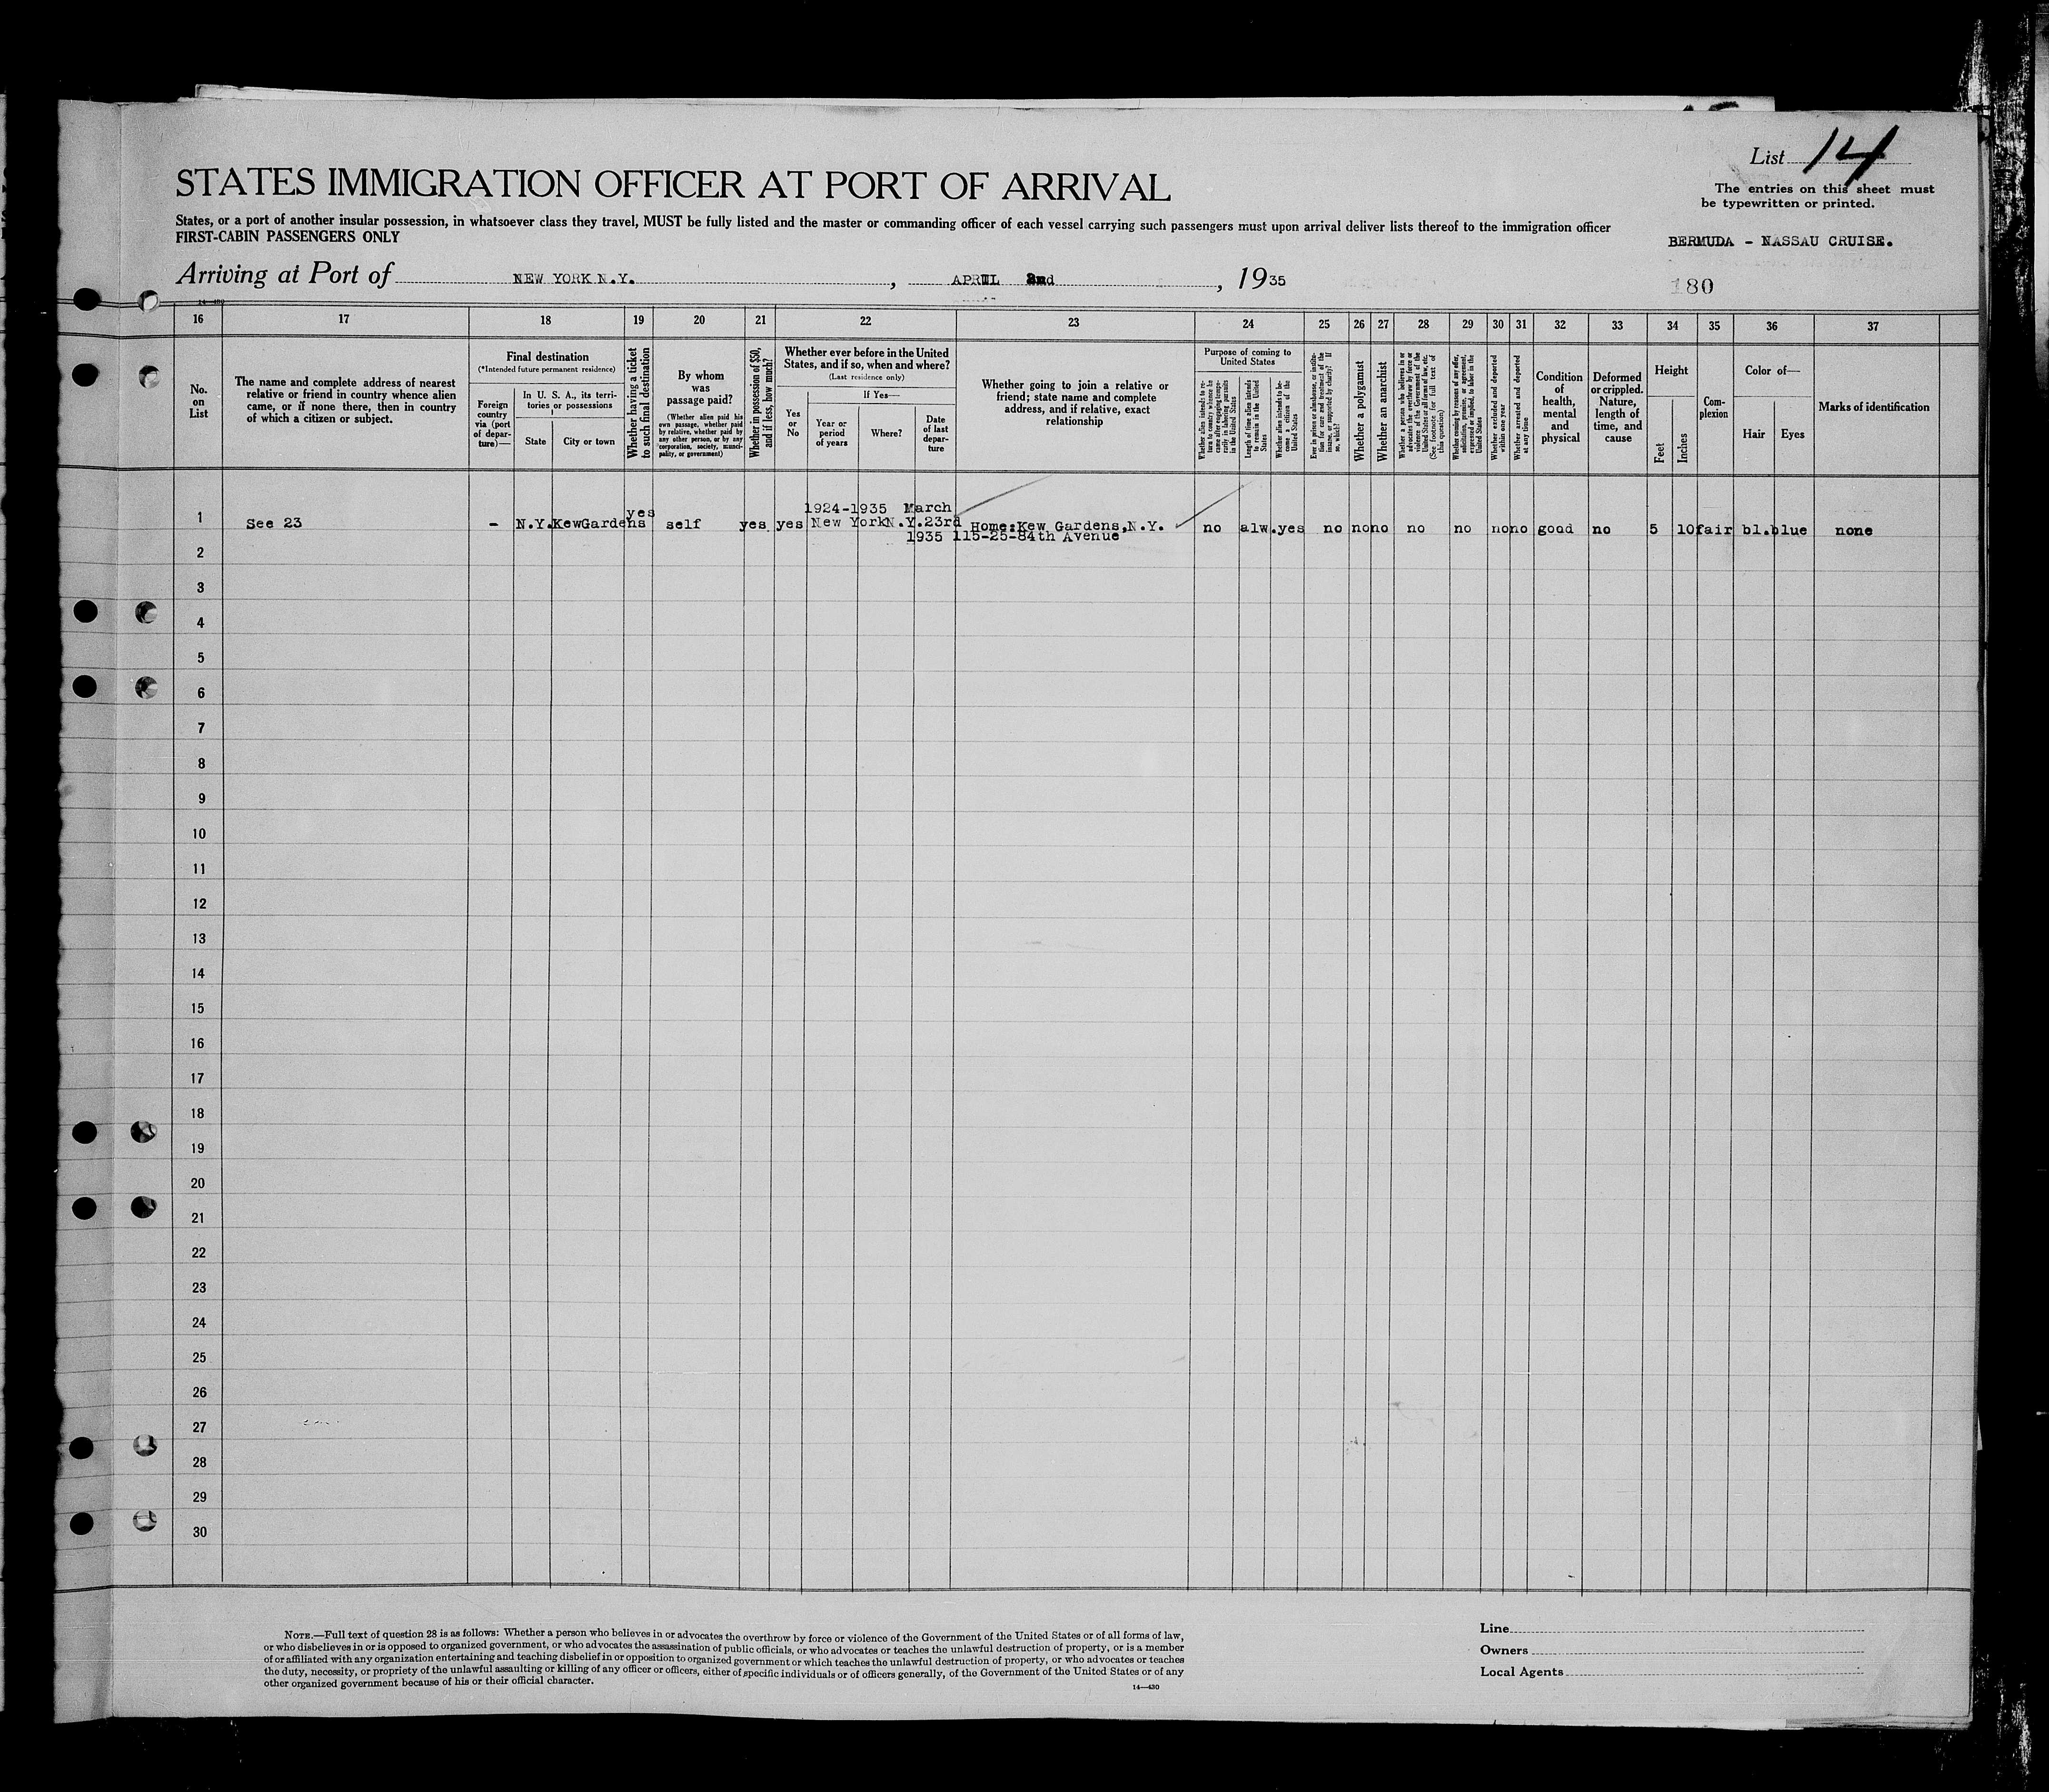 List 14
STATES IMMIGRATION OFFICER AT PORT OF ARRIVAL
The entries on this sheet must
be typewritten or printed.
States, or a port of another insular possession, in whatsoever class they travel, MUST be fully listed and the master or commanding officer of each vessel carrying such passengers must upon arrival deliver lists thereof to the immigration officer
FIRST-CABIN PASSENGERS ONLY
BERMUDA - NASSAU CRUISE.
Arriving at Port of NEW YORK N.Y. , APRIL 2nd , 1935
180
16 17 18 19 20 21 22 23 24 25 26 27 28 29 30 31 32 33 34 35 36 37
No. on List
The name and complete address of nearest
relative or friend in country whence alien
came, or if none there, then in country
of which a citizen or subject.
Final destination
(*Intended future permanent residence)
Foreign
country
via (port
of depar-
ture)—
In U. S. A., its terri-
tories or possessions
State
City or town
Whether having a ticket
to such final destination
By whom
was
passage paid?
(Whether alien paid his
own passage, whether paid
by relative, whether paid by
any other person, or by any
corporation, society, munici-
pality, or government)
Whether in possession of $50,
and if less, how much?
Whether ever before in the United
States, and if so, when and where?
(Last residence only)
If Yes—
Yes
or
No
Year or
period
of years
Where?
Date
of last
depar-
ture
Whether going to join a relative or
friend; state name and complete
address, and if relative, exact
relationship
Purpose of coming to
United States
Whether alien intends to re-
turn to country whence he
came after engaging tempo-
rarily in laboring pursuits
in the United States
Length of time alien intends
to remain in the United
States
Whether alien intends to be-
come a citizen of the
United States
Ever in prison or almshouse, or institu-
tion for care and treatment of the
insane, or supported by charity? If
so, which?
Whether a polygamist
Whether an anarchist
Whether a person who believes in or
advocates the overthrow by force or
violence of the Government of the
United States or all forms of law, etc.
(See footnote for full text of
this question)
Whether coming by reasons of any offer,
solicitation, promise, or agreement,
expressed or implied, to labor in the
United States
Whether excluded and deported
within one year
Whether arrested and deported
at any time
Condition
of
health,
mental
and
physical
Deformed
or crippled.
Nature,
length of
time, and
cause
Height
Feet
Inches
Com-
plexion
Color of—
Hair
Eyes
Marks of identification
1924-1935 March
1 See 23 - N.Y. KewGardens yes self yes yes New York N.Y. 23rd Home: Kew Gardens, N.Y. no alw. yes no no no no no no no good no 5 10 fair bl. blue none
1935 115-25-84th Avenue
2
3
4
5
6
7
8
9
10
11
12
13
14
15
16
17
18
19
20
21
22
23
24
25
26
27
28
29
30
NOTE.—Full text of question 28 is as follows: Whether a person who believes in or advocates the overthrow by force or violence of the Government of the United States or of all forms of law,
or who disbelieves in or is opposed to organized government, or who advocates the assassination of public officials, or who advocates or teaches the unlawful destruction of property, or is a member
of or affiliated with any organization entertaining and teaching disbelief in or opposition to organized government or which teaches the unlawful destruction of property, or who advocates or teaches
the duty, necessity, or propriety of the unlawful assaulting or killing of any officer or officers, either of specific individuals or of officers generally, of the Government of the United States or of any
other organized government because of his or their official character.
14—430
Line
Owners
Local Agents